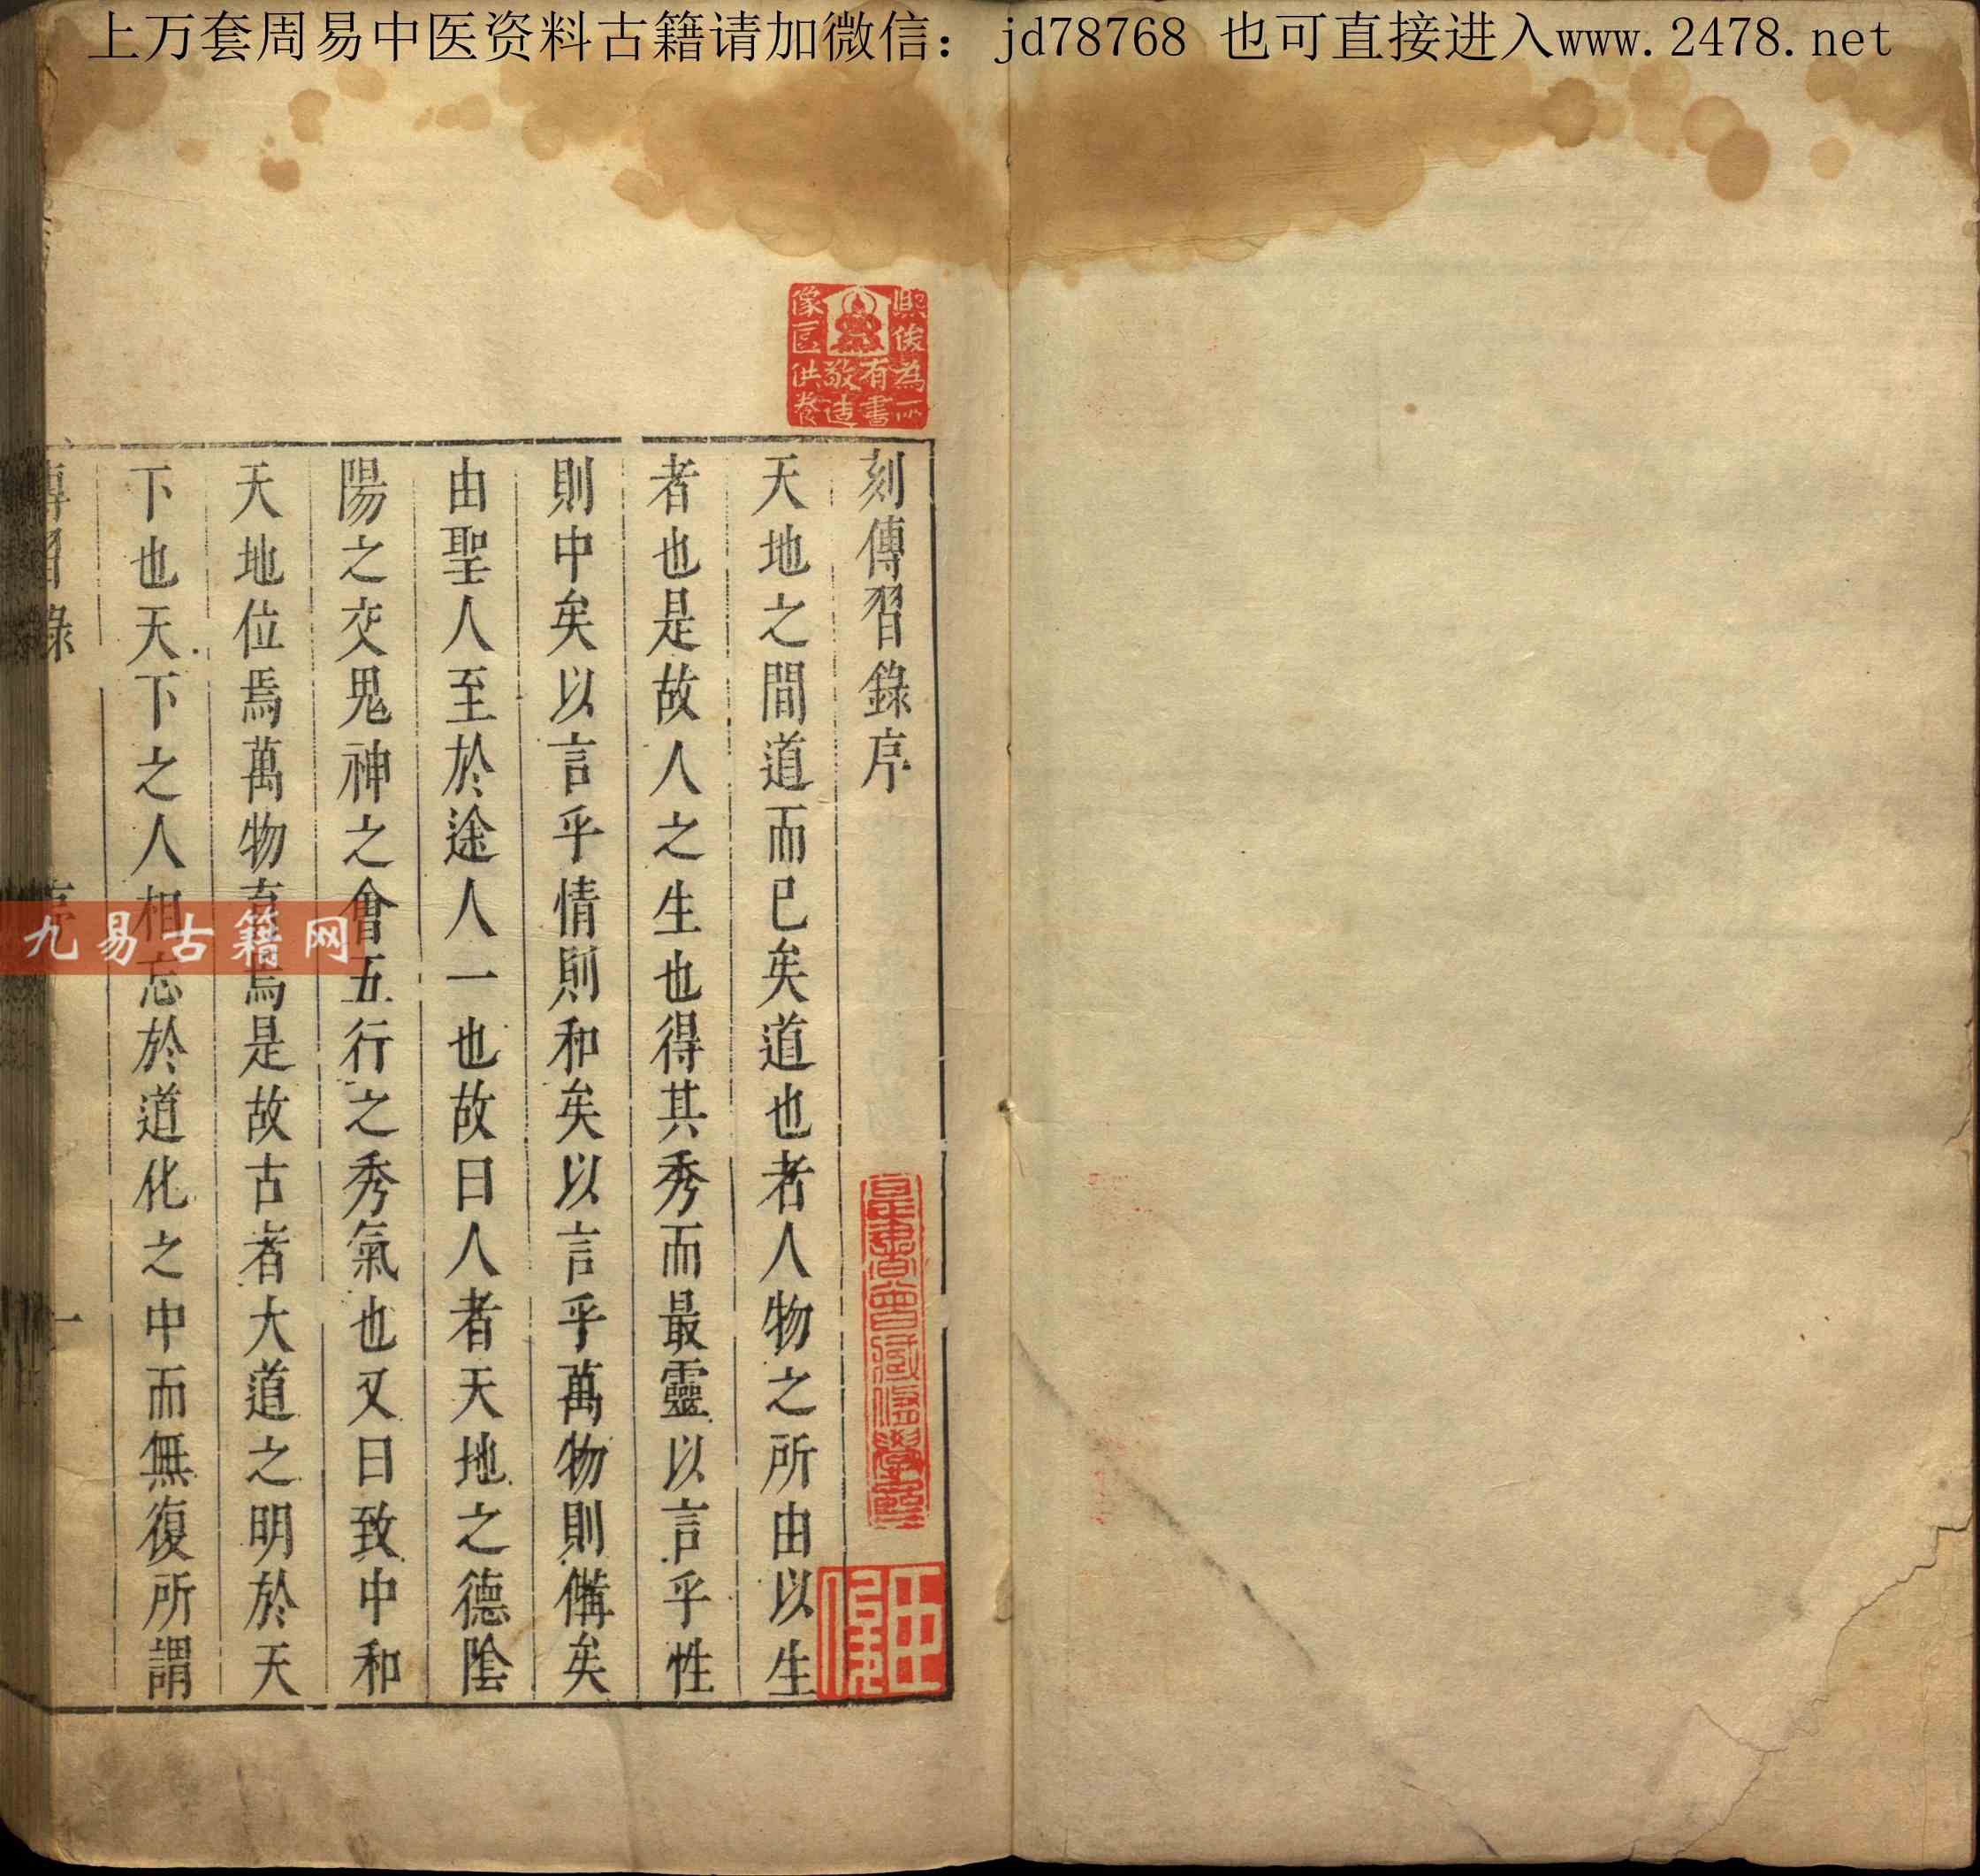 上万套周易中医资料古籍请加微信： jd78768 也可直接进入www.2478.net
刻傳習錄序
天地之間道而已矣道也者人物之所由以生
者也是故人之生也得其秀而最靈以言乎性
則中矣以言乎情則和矣以言乎萬物則備矣
由聖人至於途人一也故曰人者天地之德陰
陽之交鬼神之會五行之秀氣也又曰致中和
天地位焉萬物育焉是故古者大道之明於天
下也天下之人相忘於道化之中而無復所謂
傳習錄
序
一
九易古籍网